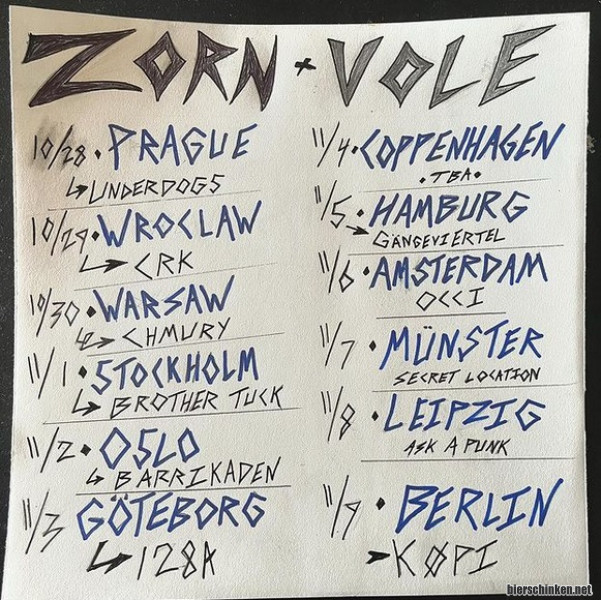 ZORN + VOLE
10/28 • PRAGUE
↳ UNDERDOGS
10/29 • WROCLAW
↳ CRK
10/30 • WARSAW
↳ CHMURY
11/1 • STOCKHOLM
↳ BROTHER TUCK
11/2 • OSLO
↳ BARRIKADEN
11/3 GÖTEBORG
↳ 128A
11/4 • COPPENHAGEN
• TBA •
11/5 • HAMBURG
→ GÄNGEVIERTEL
11/6 • AMSTERDAM
OCCI
11/7 • MÜNSTER
SECRET LOCATION
11/8 • LEIPZIG
ASK A PUNK
11/9 • BERLIN
→ KØPI
bierschinken.net